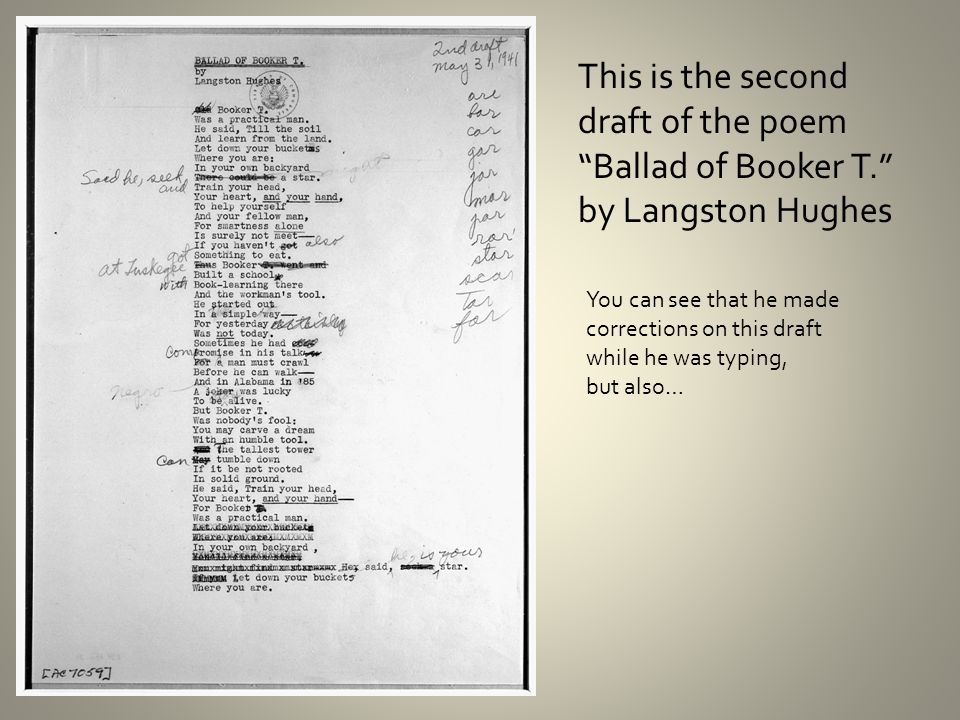 BALLAD OF BOOKER T.
by
Langston Hughes
2nd draft
May 31, 1941
Booker T.
Was a practical man.
He said, Till the soil
And learn from the land.
Let down your buckets
Where you are:
In your own backyard
There could be a star.
Said he, seek
and
might
Train your head,
Your heart, and your hand,
To help yourself
And your fellow man,
For smartness alone
Is surely not meet—
If you haven't got also
Something to eat.
Thus Booker T. went and
at Tuskegee
got
Built a school,
with Book-learning there
And the workman's tool.
He started out
In a simple way—
For yesterday
Was not today.
Sometimes he had
Com
Promise in his talk
For a man must crawl
Before he can walk—
And in Alabama in '85
negro
A joker was lucky
To be alive.
But Booker T.
Was nobody's fool:
You may carve a dream
With an humble tool.
The tallest tower
Can
May tumble down
If it be not rooted
In solid ground.
He said, Train your head,
Your heart, and your hand—
For Booker T.
Was a practical man.
Let down your bucket
Where you are:
In your own backyard,
he, is yours
He said, star.
Let down your buckets
Where you are.
are
bar
car
gar
jar
mar
par
star
scar
tar
far
[AC 7059]
This is the second
draft of the poem
“Ballad of Booker T.”
by Langston Hughes
You can see that he made
corrections on this draft
while he was typing,
but also…